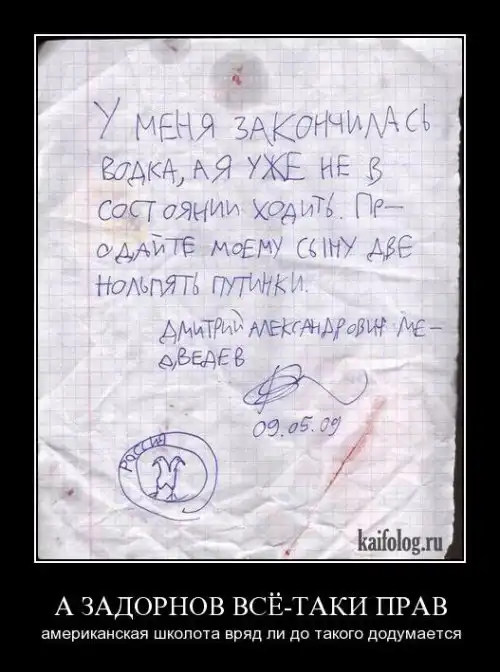 У МЕНЯ ЗАКОНЧИЛАСЬ
ВОДКА, А Я УЖЕ НЕ В
СОСТОЯНИИ ХОДИТЬ. ПР–
ОДАЙТЕ МОЕМУ СЫНУ ДВЕ
НОЛЬПЯТЬ ПУТИНКИ.
ДМИТРИЙ АЛЕКСАНДРОВИЧ МЕ–
ДВЕДЕВ
09.05.09
РОССИЯ
kaifolog.ru
А ЗАДОРНОВ ВСЁ-ТАКИ ПРАВ
американская школота вряд ли до такого додумается